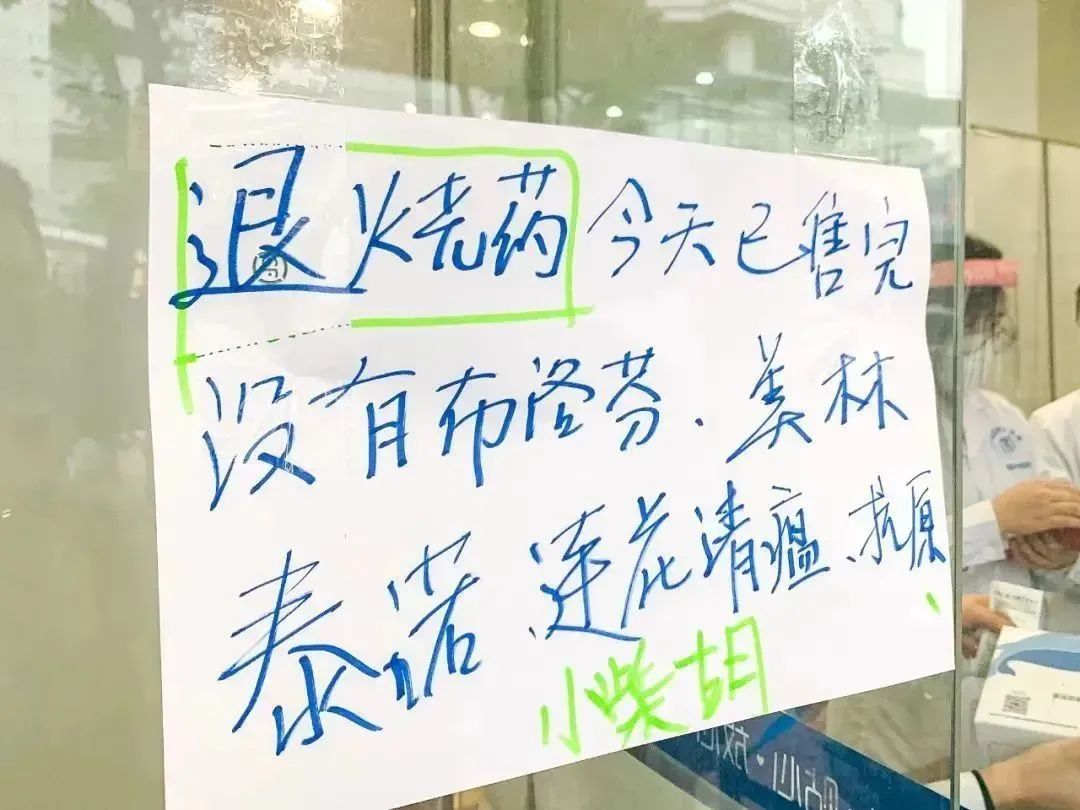 退烧药 今天已售完
没有布洛芬、美林
泰诺、连花清瘟、抗原、
小柴胡